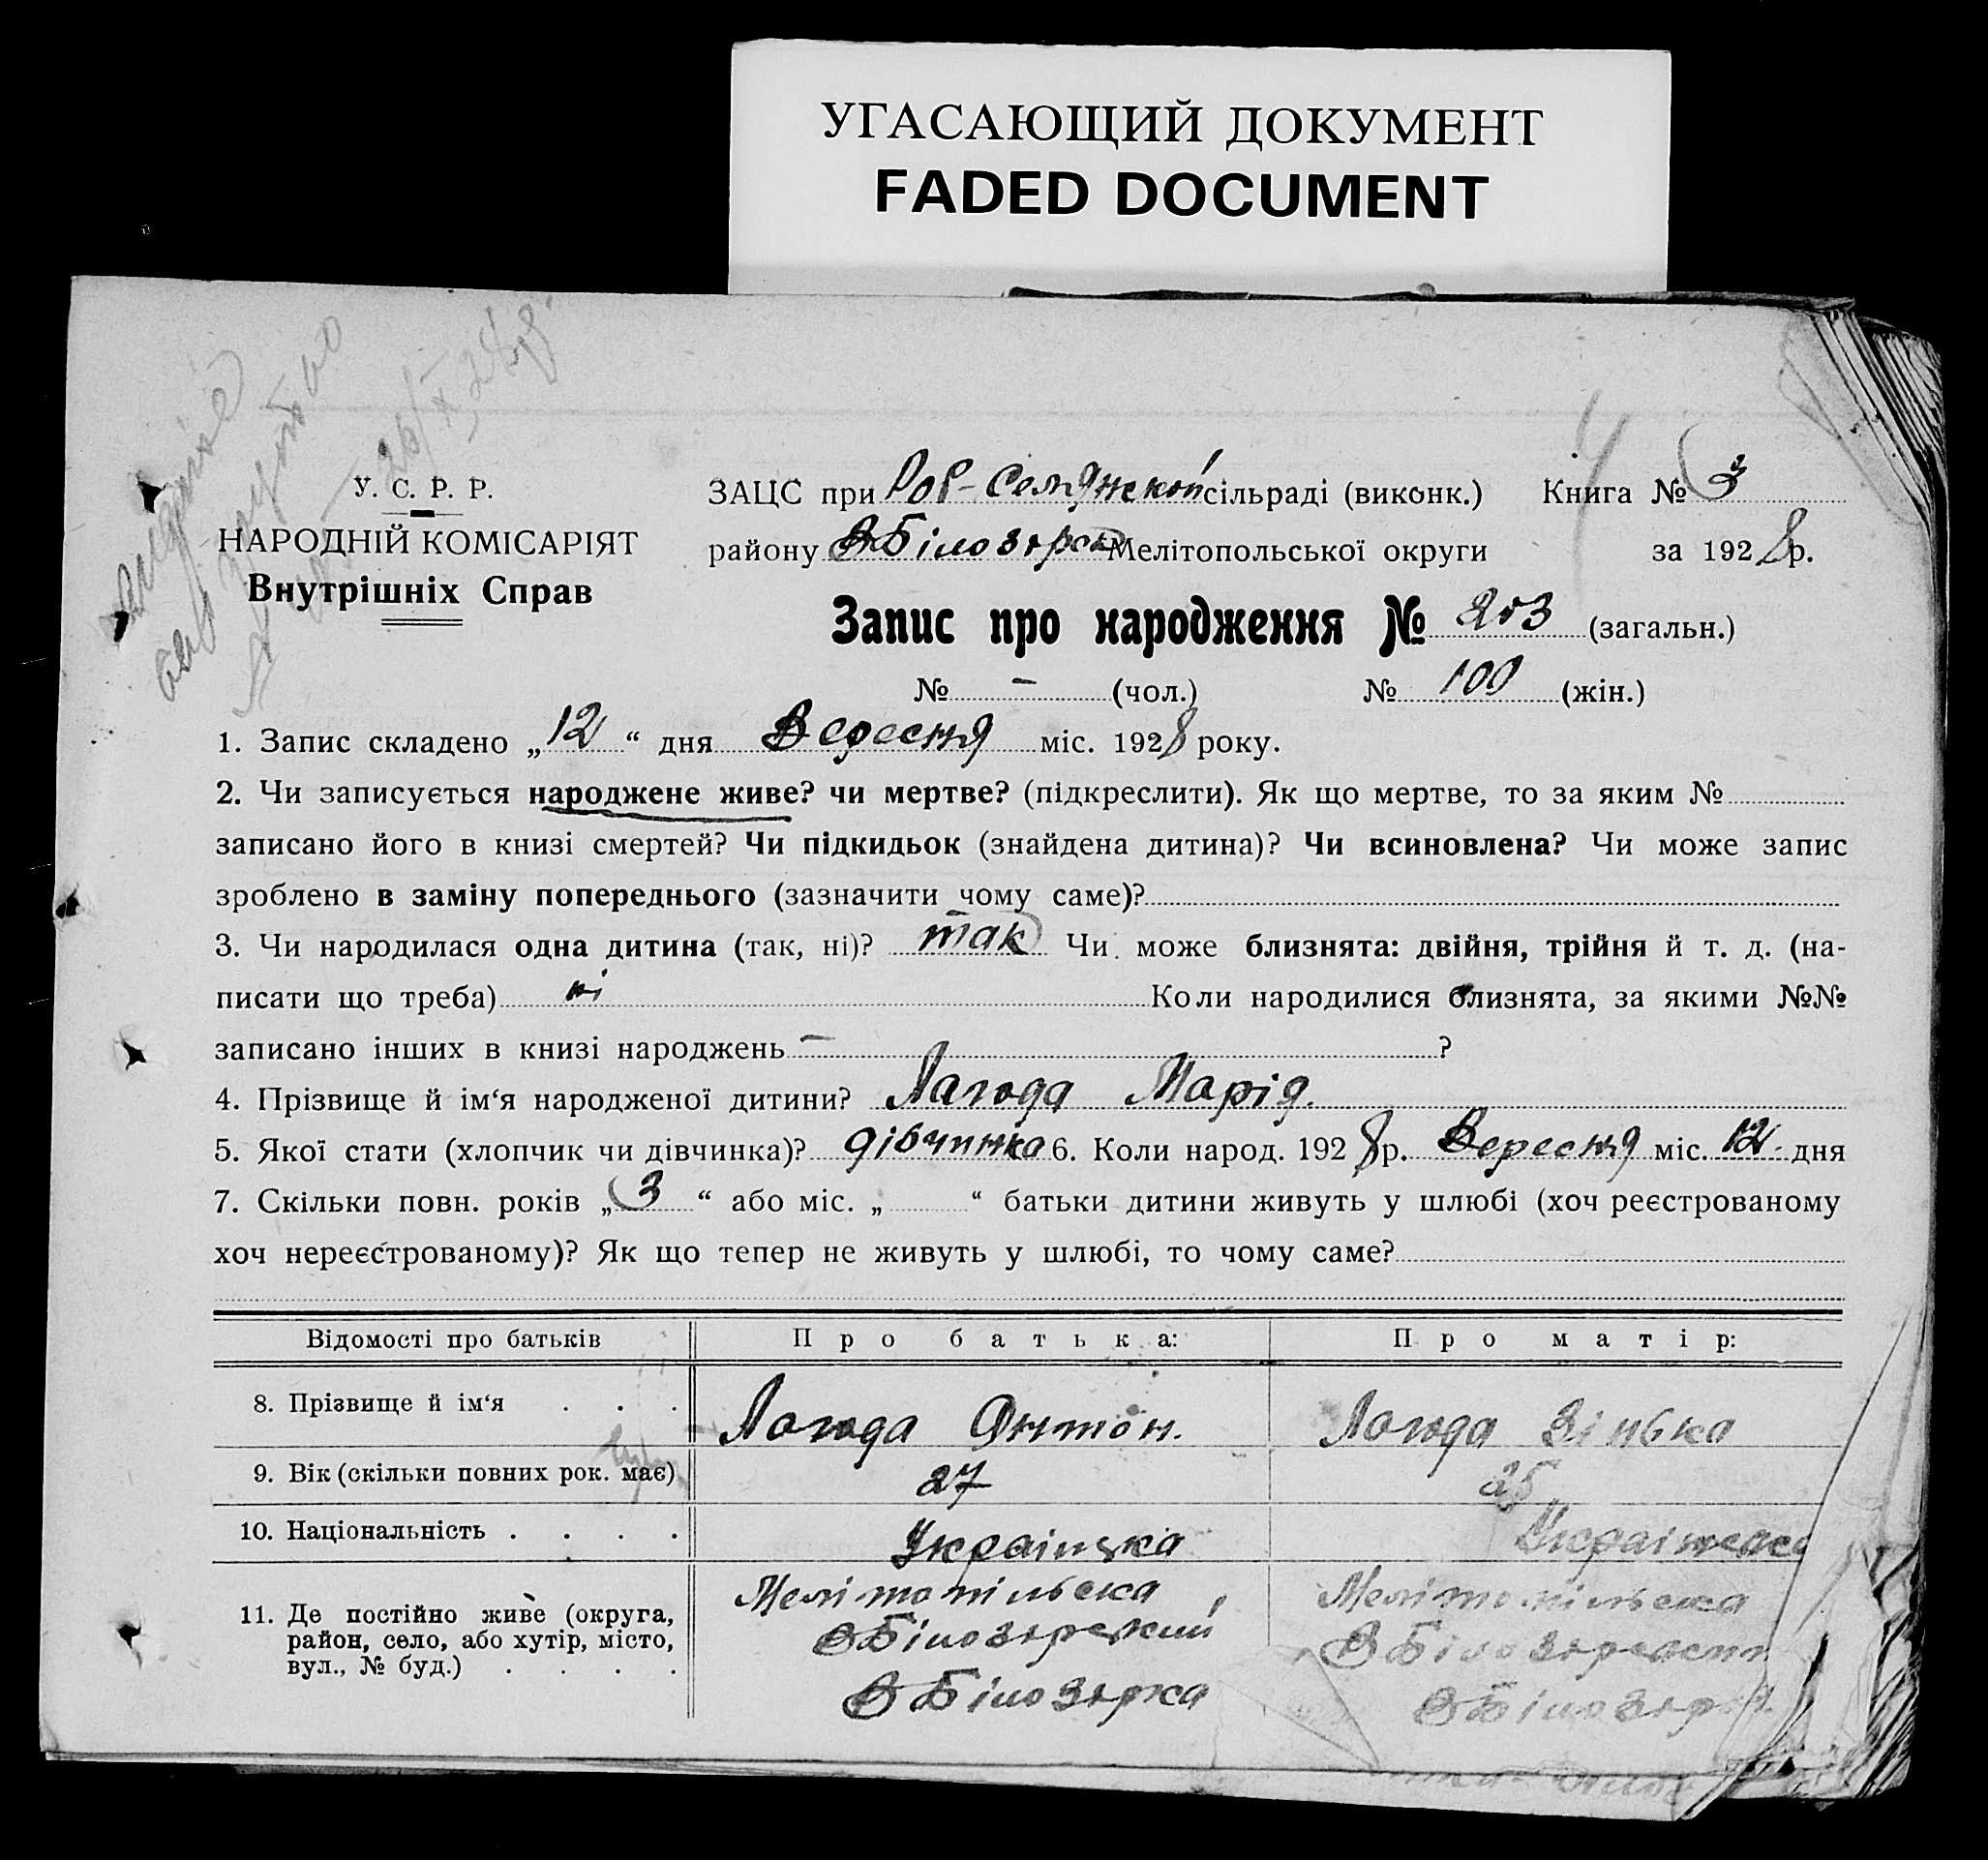 УГАСАЮЩИЙ ДОКУМЕНТ
FADED DOCUMENT
У. С. Р. Р.
НАРОДНІЙ КОМІСАРІЯТ
Внутрішніх Справ
ЗАЦС при Роб-Селянской сільраді (виконк.) Книга № 3
району ВБілозьрськ Мелітопольської округи за 1928 р.
Запис про народження № 203 (загальн.)
№ – (чол.) № 100 (жін.)
1. Запис складено „12“ дня Вересня міс. 1928 року.
2. Чи записується народжене живе? чи мертве? (підкреслити). Як що мертве, то за яким №
записано його в книзі смертей? Чи підкидьок (знайдена дитина)? Чи всиновлена? Чи може запис
зроблено в заміну попереднього (зазначити чому саме)?
3. Чи народилася одна дитина (так, ні)? так Чи може близнята: двійня, трійня й т. д. (на-
писати що треба) ні Коли народилися близнята, за якими №№
записано інших в книзі народжень – ?
4. Прізвище й ім‘я народженої дитини? Лагода Марія.
5. Якої стати (хлопчик чи дівчинка)? дівчинка 6. Коли народ. 1928 р. Вересня міс. 12 дня
7. Скільки повн. років „3“ або міс. „ “ батьки дитини живуть у шлюбі (хоч реєстрованому
хоч нереєстрованому)? Як що тепер не живуть у шлюбі, то чому саме?
Відомості про батьків Про батька: Про матір:
8. Прізвище й ім‘я . . . Лагода Антон. Лагода Зінька
9. Вік (скільки повних рок. має) 27 25
10. Національність . . . . Українцка Українська
11. Де постійно живе (округа, район, село, або хутір, місто, вул., № буд.) . . . .
Мелітопільска Мелітопільска
ВБілозьрський ВБілозьрск
ВБілозьрка ВБілозьрка